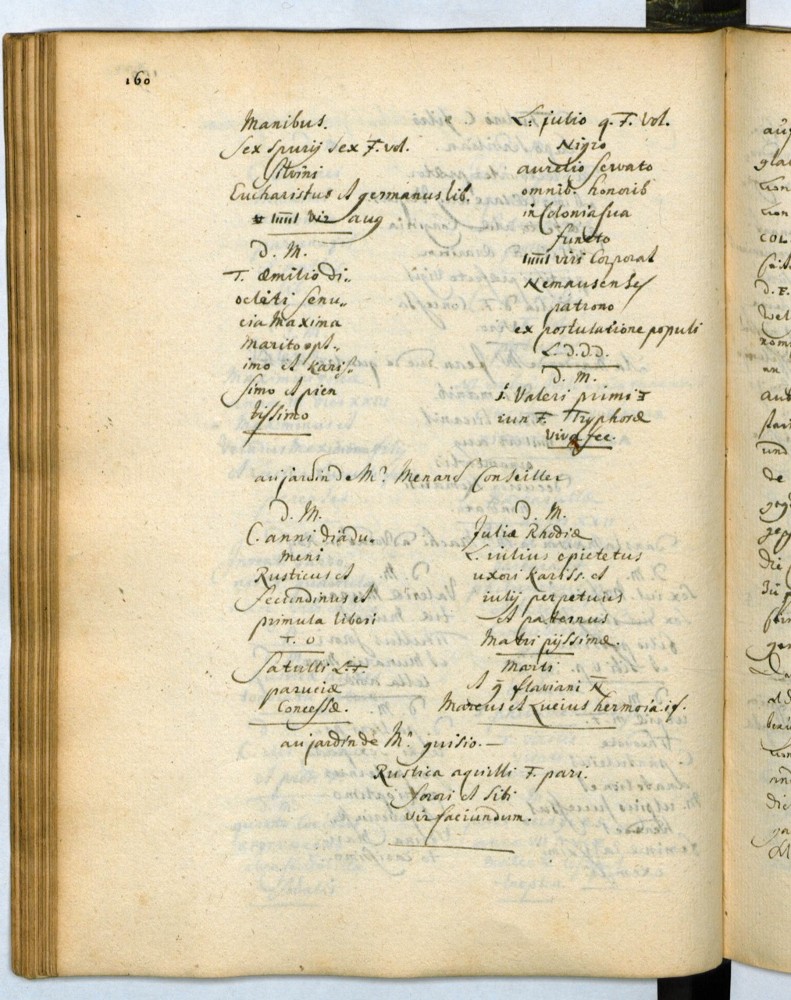 160
Manibus.
Sex Spurij Sex F. vol.
Silvini
Eucharistus et germanus lib.
IIIII vir aug
D. M.
T. æmilio Di..
octæti Senu..
cia Maxima
marito opt..
imo et kariss.
simo et pien
tissimo
L. julio q. F. vol.
Nigro
aurelio servato
omnib. honorib
in Colonia sua
functo
IIIII viri Corporat
Nemausenses
patrono
ex postulatione populi
L. d. d. d.
D. M.
Valeri primi
F. Tryphosæ
viva fec.
au jardin de Mr. Menard Conseiller
D. M.
C. anni diadu.
meni
Rusticus et
secundinus et
primula liberi
T. O
Satulli L. F.
paruciæ
Concessæ.
D. M.
Juliæ Rhodiæ
L. iulius epictetus
uxori kariss. et
iulij perpetuus
et paternus
Matri pijssimæ.
Marti
et flaviani N
Marcus et Lucius hermoia. if.
au jardin de Mr. guisio. —
Rustica aquilli F. pari.
sorori et sibi
vir faciundum.